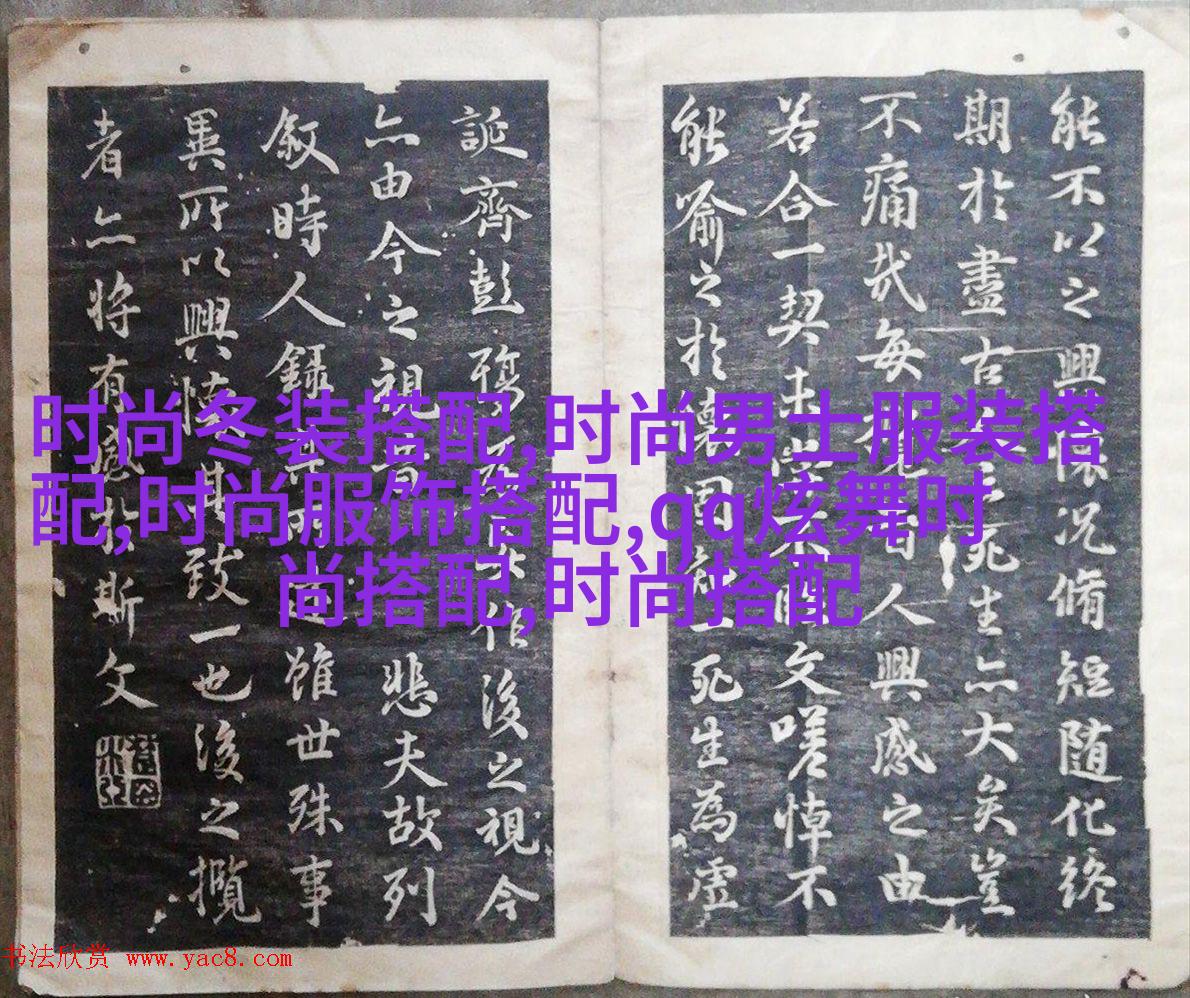 能不以之興懷況脩短随化終
期於盡古人云死生亦大矣豈
不痛哉每昔人興感之由
若合一契未嘗不臨文嗟悼不
能喻之於懷固知一死生為虛
誕齊彭殤為妄作後之視今
亦由今之視昔悲夫故列
敘時人錄其所述雖世殊事
異所以興懷其致一也後之攬
者亦将有感於斯文
时尚冬装搭配,时尚男士服装搭
配,时尚服饰搭配,qq炫舞时
尚搭配,时尚搭配
书法欣赏 www.yac8.com